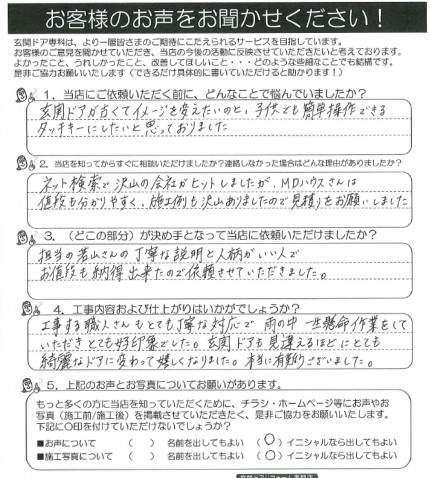 お客様のお声をお聞かせください！
玄関ドア専科は、より一層皆さまのご期待にこたえられるサービスを目指しています。
お客様のご意見を聞かせていただき、当店の今後の活動に反映させていただきたいと考えております。
よかったこと、うれしかったこと、改善してほしいこと・・・どのような些細なことでも結構です。
是非ご協力お願いいたします（できるだけ具体的に書いていただけると助かります！）
１．当店にご依頼いただく前に、どんなことで悩んでいましたか？
玄関ドアが古くてイメージを変えたいのと、子供でも簡単操作できる
タッチキーにしたいと思っておりました
２．当店を知ってからすぐに相談いただけましたか？連絡しなかった場合はどんな理由がありましたか？
ネット検索で沢山の会社がヒットしましたが、MDハウスさんは
値段も分かりやすく、施工例も沢山ありましたので見積りをお願いしました
３．（どこの部分）が決め手となって当店に依頼いただけましたか？
担当の若山さんの丁寧な説明と人柄がいい人で
お値段も納得出来たので依頼させていただきました。
４．工事内容および仕上がりはいかがでしょうか？
工事する職人さんもとても丁寧な対応で雨の中一生懸命作業をして
いただきとても好印象でした。玄関ドアも見違えるほどにとても
綺麗なドアに変わって嬉しくなりました。本当に有難うございました。
５．上記のお声とお写真についてお願いがあります。
もっと多くの方に当店を知っていただくために、チラシ・ホームページ等にお声やお
写真（施工前/施工後）を掲載させていただきたく、是非ご協力をお願いいたします。
下記に〇印を付けていただけないでしょうか？
■お声について （ ） 名前を出してもよい （〇）イニシャルなら出してもよい
■施工写真について （ ） 名前を出してもよい （〇）イニシャルなら出してもよい